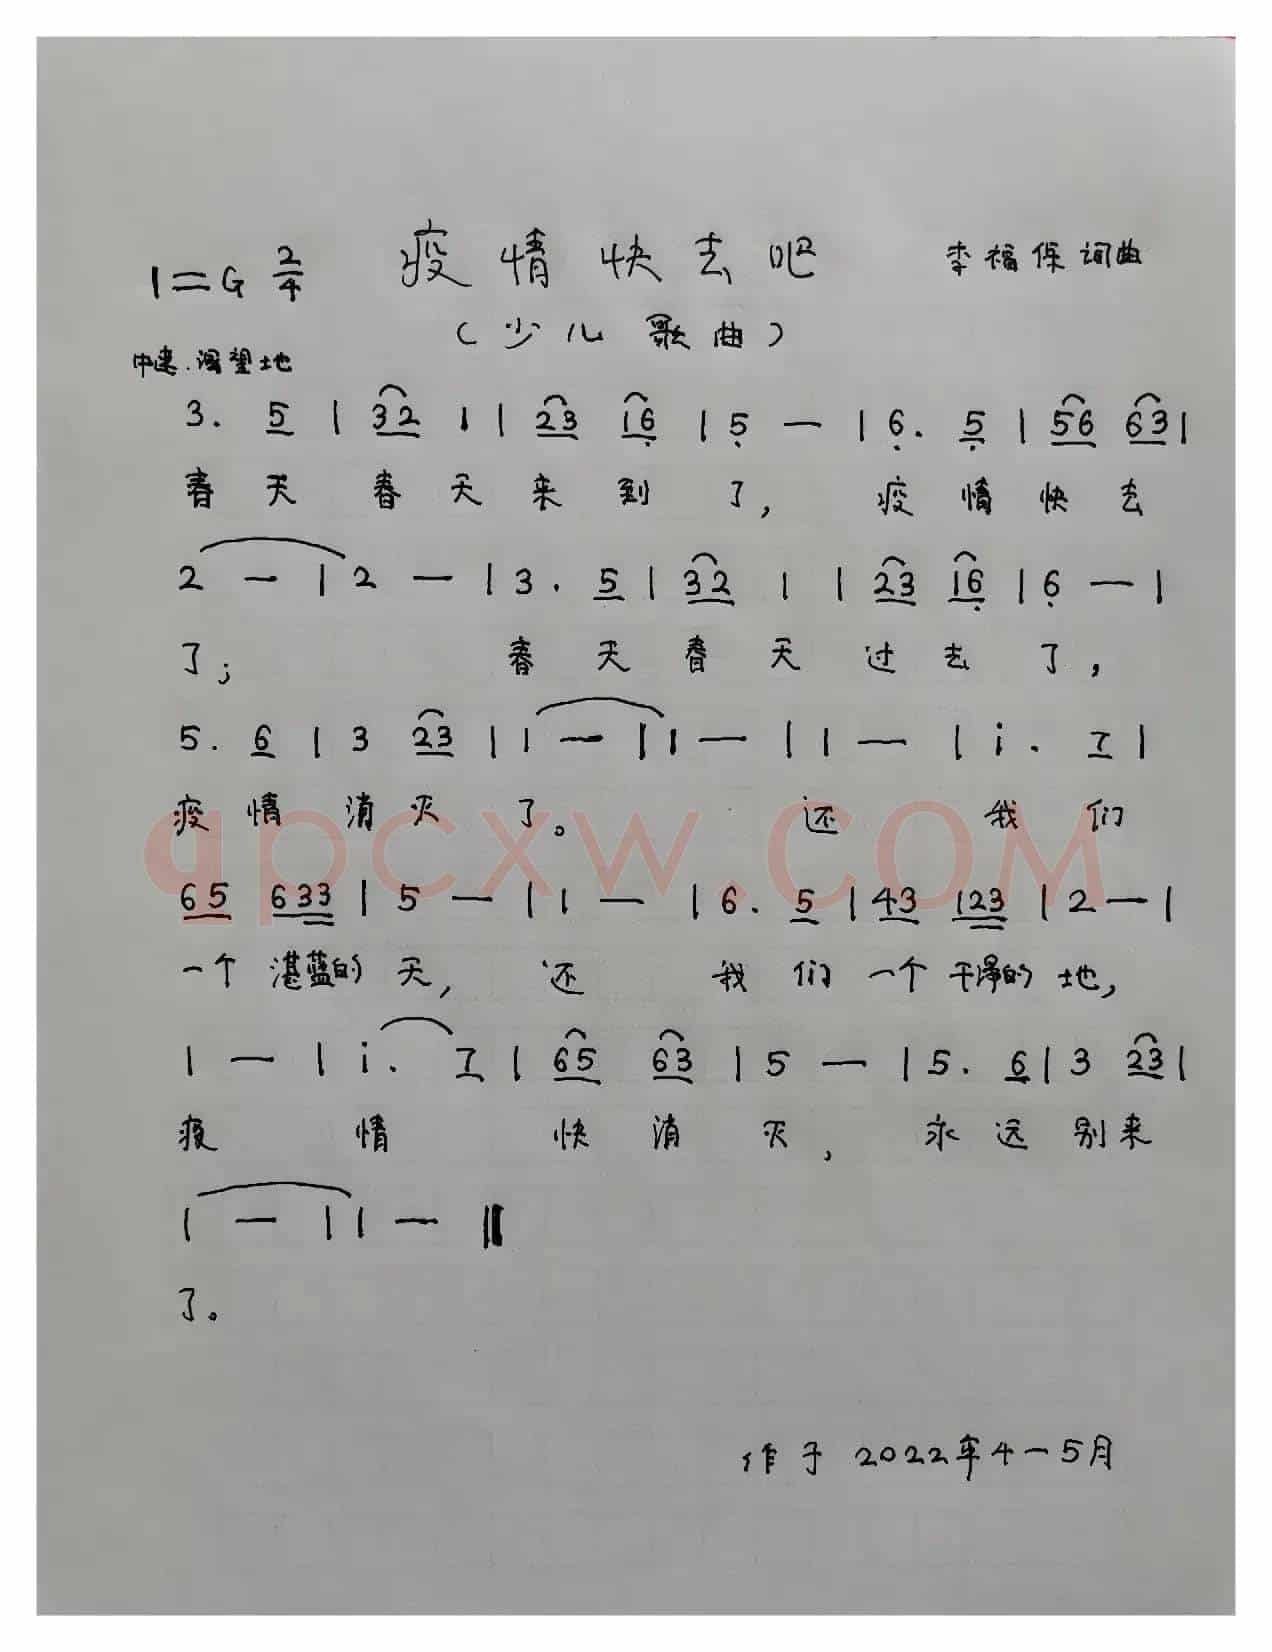 1=G 2/4 疫情快去吧 李福保词曲
(少儿歌曲)
中速.渴望地
3. 5 | 32 1 | 23 16 | 5 — | 6. 5 | 56 63 |
春天春天来到了, 疫情快去
2 — | 2 — | 3. 5 | 32 1 | 23 16 | 6 — |
了; 春天春天过去了,
5. 6 | 3 23 | 1 — | 1 — | 1 — | i. 7 |
疫情消灭了。 还我们
qpcxw.com
65 633 | 5 — | 1 — | 6. 5 | 43 123 | 2 — |
一个湛蓝的天, 还我们一个干净的地,
1 — | i. 7 | 65 63 | 5 — | 5. 6 | 3 23 |
疫情快消灭, 永远别来
1 — | 1 — ‖
了。
作于2022年4—5月